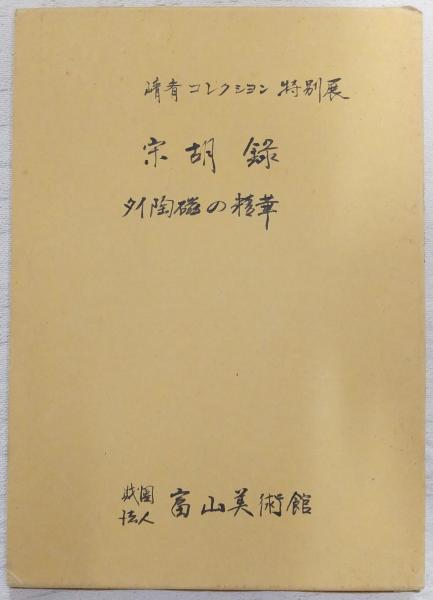 晴青コレクション 特別展
宋胡録
タイ陶磁の精華
財團法人 富山美術館